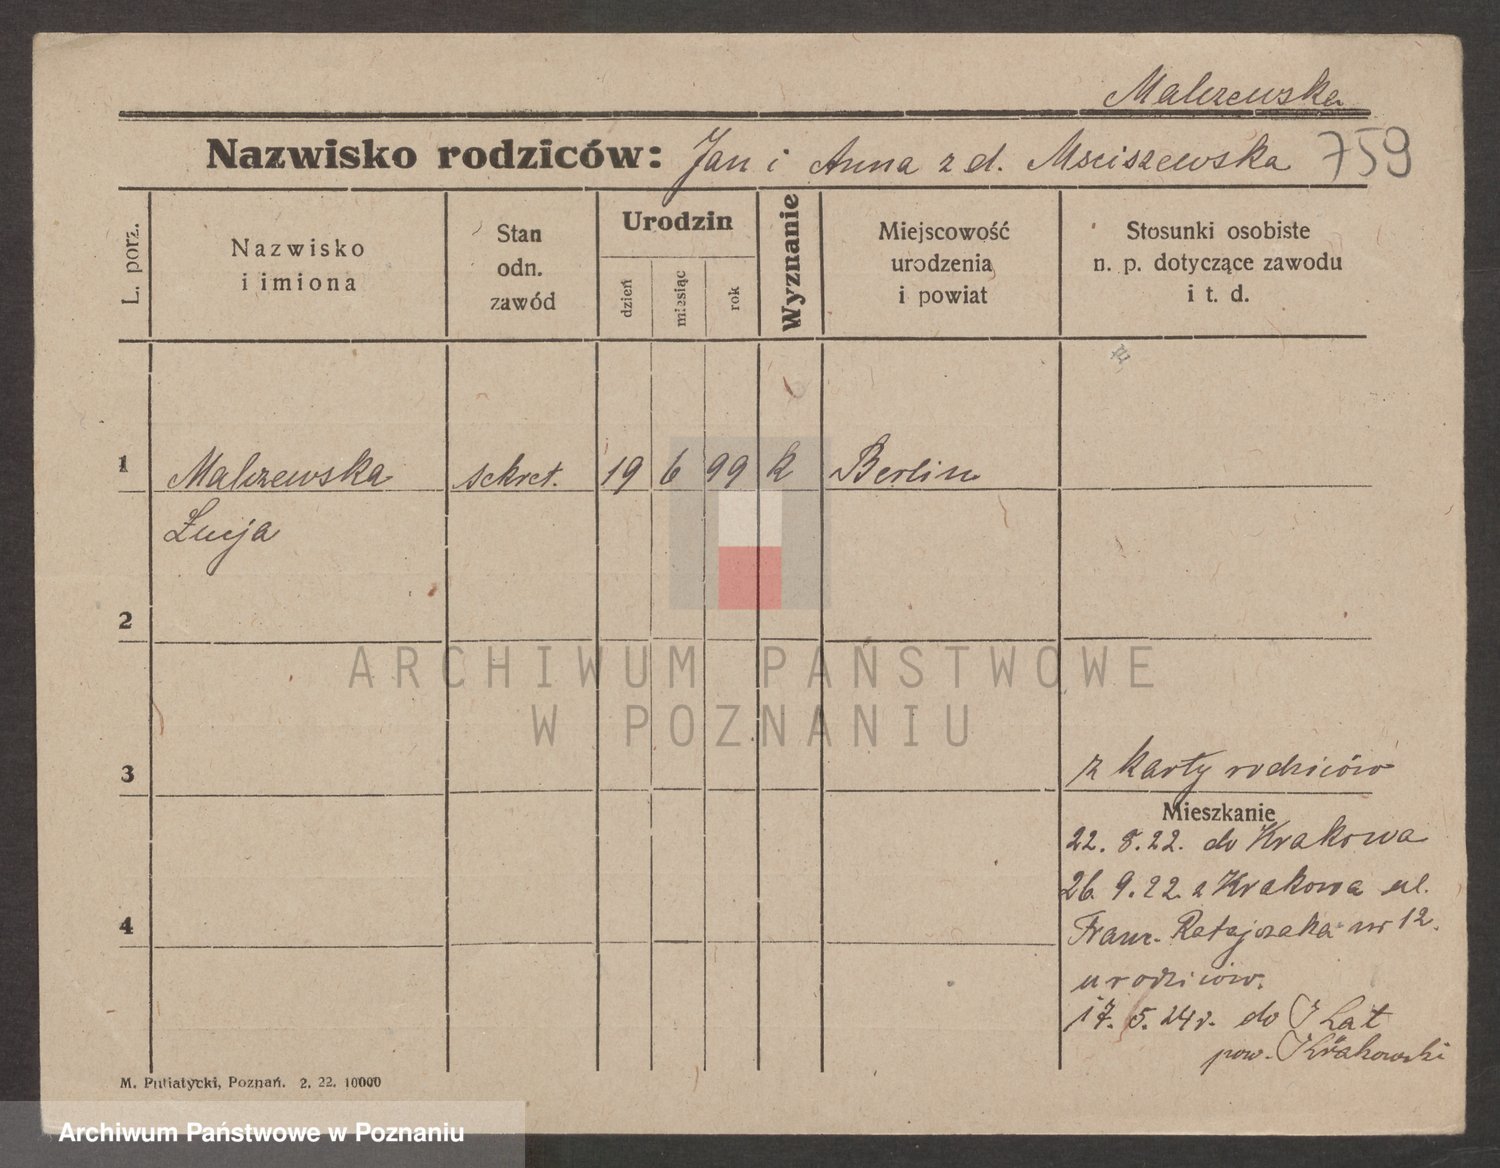 Malczewska
Nazwisko rodziców: Jan i Anna z d. Msciszewska 759
L. porz.
Nazwisko
i imiona
Stan
odn.
zawód
Urodzin
dzień
miesiąc
rok
Wyznanie
Miejscowość
urodzenia
i powiat
Stosunki osobiste
n. p. dotyczące zawodu
i t. d.
1 Malczewska sekret. 19 6 99 k Berlin
Łucja
2
ARCHIWUM PAŃSTWOWE
W POZNANIU
3
z karty rodziców
Mieszkanie
22. 8. 22. do Krakowa
26 9. 22. z Krakowa ul.
4
Franc. Ratajczaka nr 12.
u rodziców.
17. 5. 24 r. do
pow. Krakowski
M. Putiatycki, Poznań. 2. 22. 10000
Archiwum Państwowe w Poznaniu